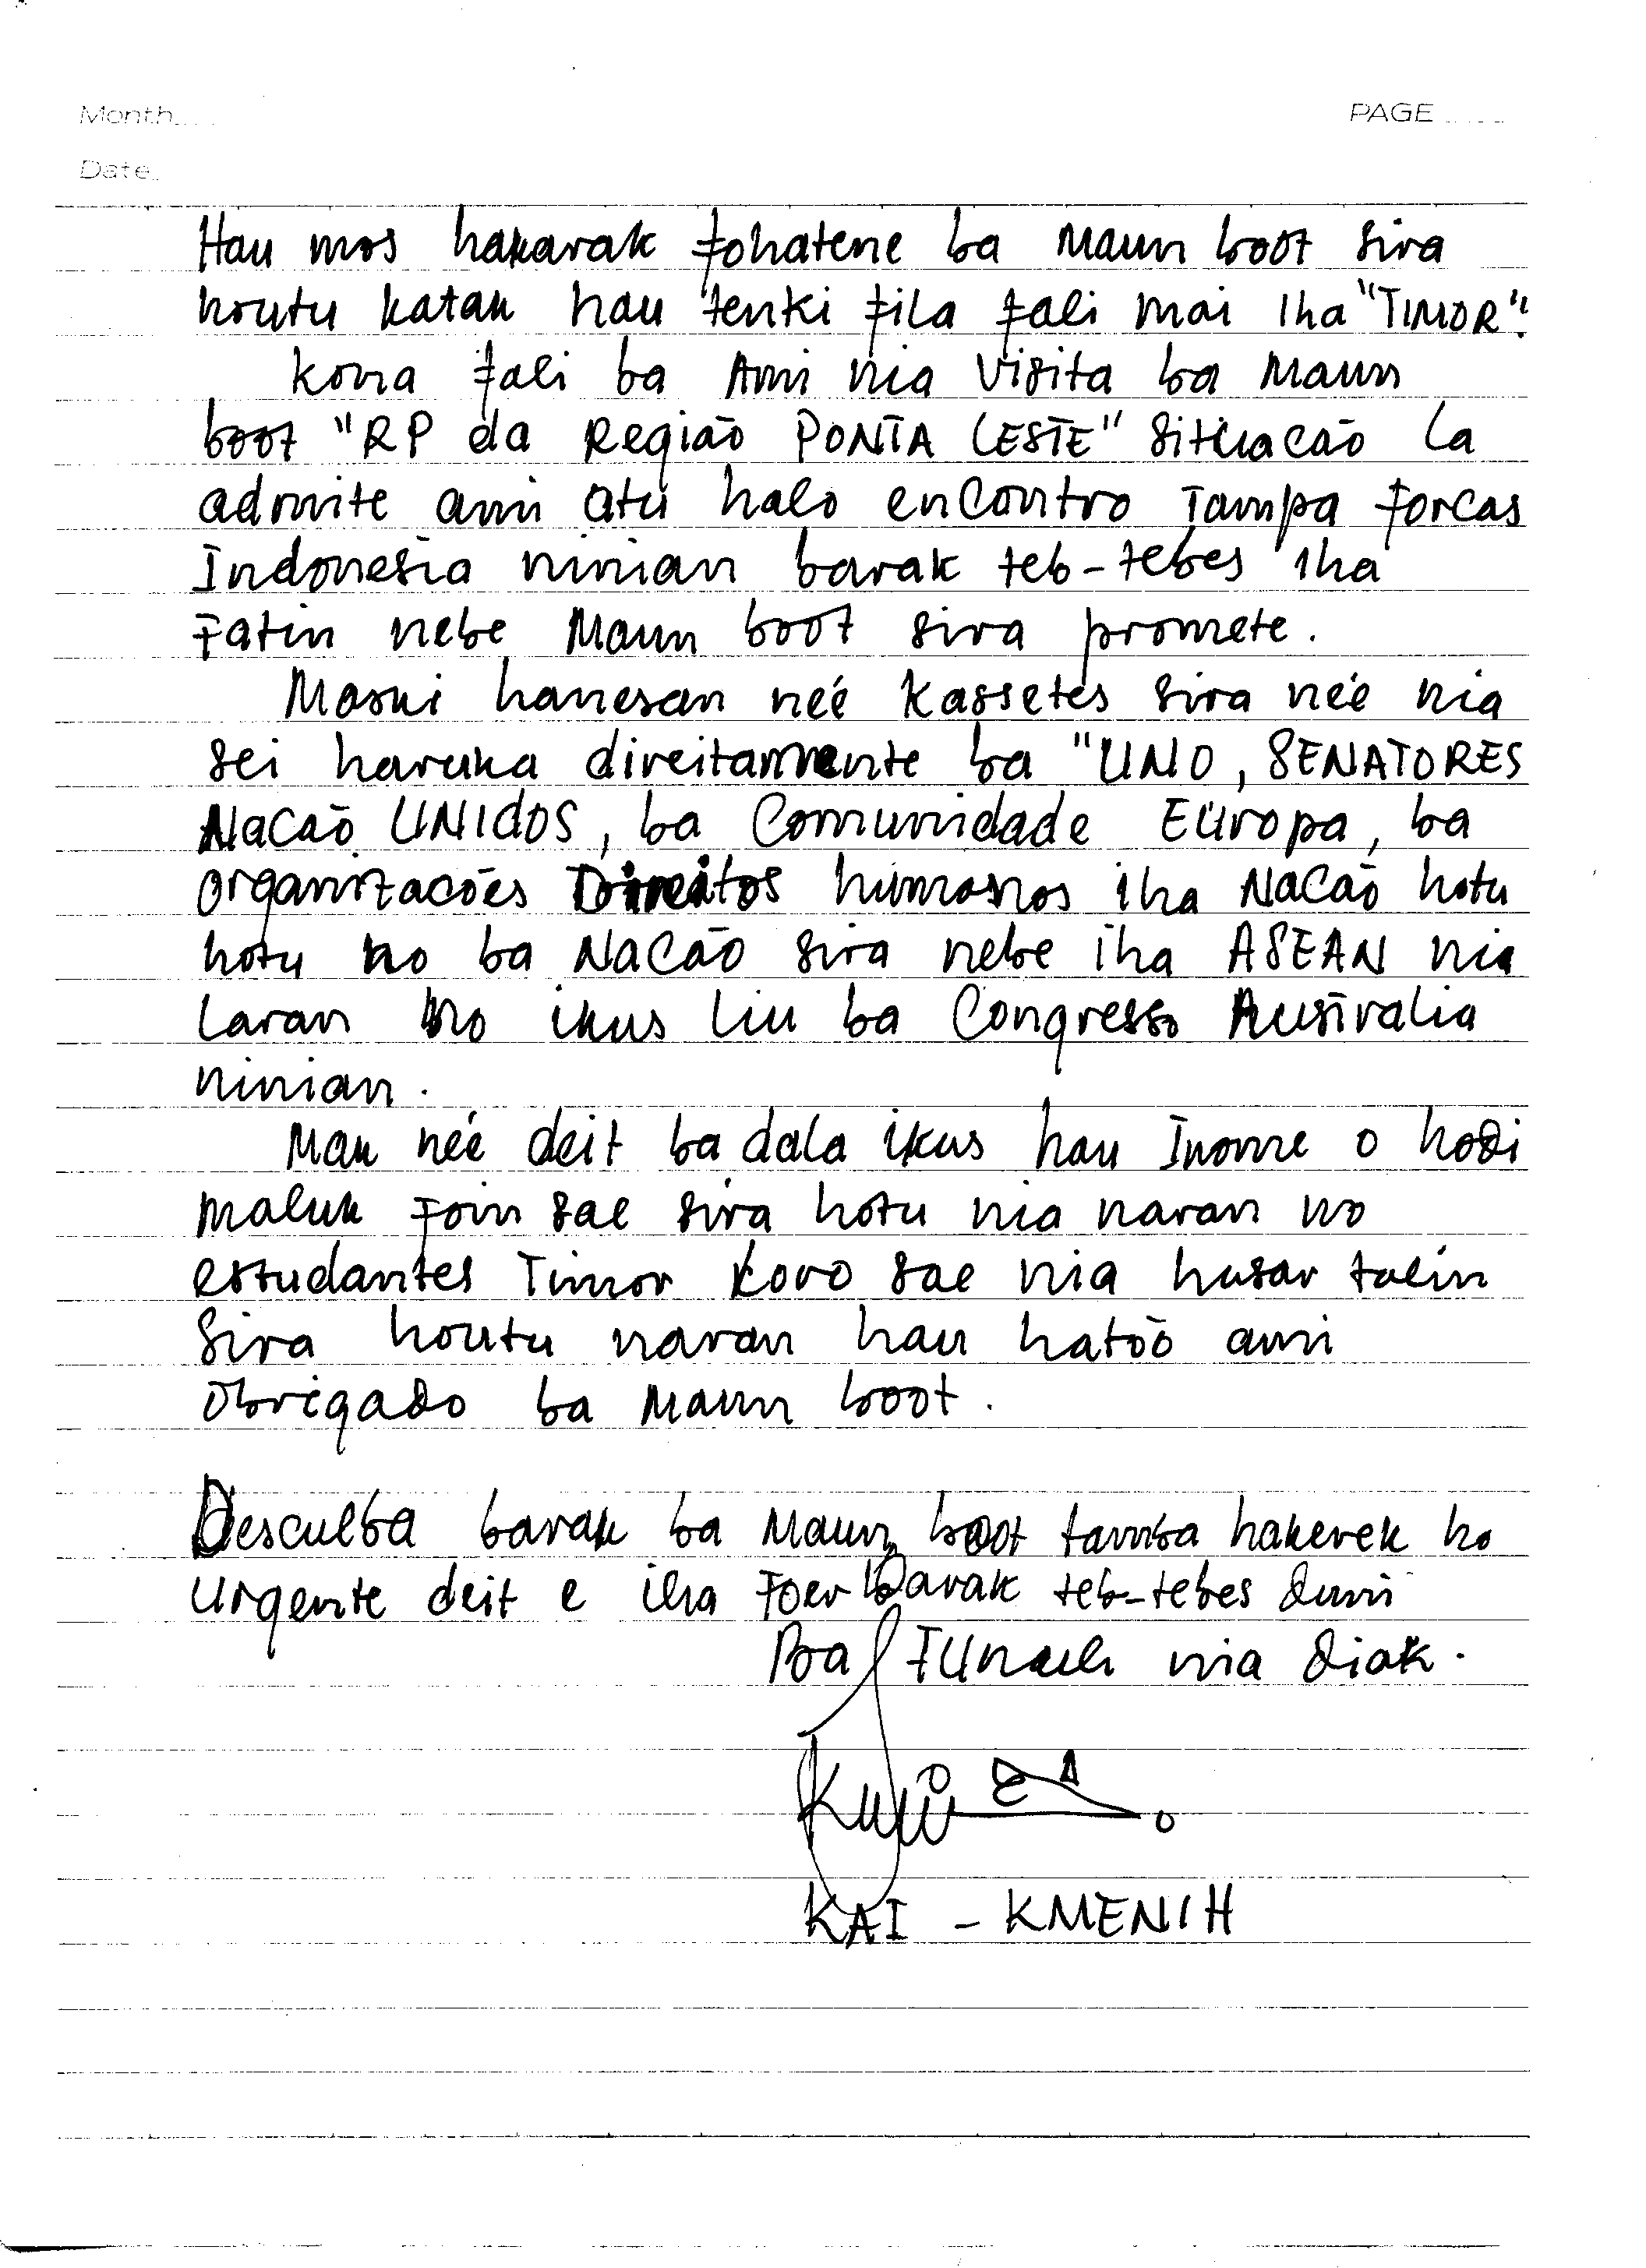 Month
PAGE
Date
Hau mos hakarak fohatene ba Maun boot sira
houtu katak hau tenki fila fali mai iha "TIMOR".
Kona fali ba Ami nia Visita ba Maun
boot "RP da Região PONTA LESTE" Situacão la
admite ami atu halo encontro Tampa forcas
Indonesia ninian barak teb-tebes iha
Fatin nebe Maun boot sira promete.
Maski hanesan neé Kassetes sira neé nia
sei haruka direitamente ba "UNO, SENATORES
Nacaō UNIdOS, ba Comunidade Europa, ba
organizacões Direitos humanos iha Nacaō hotu
hotu no ba Nacaō sira nebe iha ASEAN nia
Laran no ikus liu ba Congresso Australia
ninian.
Mak neé deit ba dala ikus hau Inome o hodi
maluk Foin sae sira hotu nia naran no
estudantes Timor Loro sae nia husar talin
Sira houtu naran hau hatōo ami
Obrigado ba Maun boot.
Desculba barak ba Maun boot tamba hakerek ho
Urgente deit e iha Foer barak teb-tebes
Ba nia diak.
KAI - KMENIH